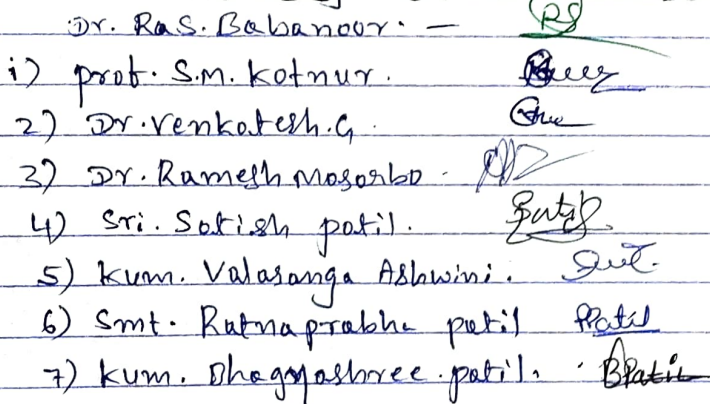 Dr. Ras. Babanoor. — RS
i) prof. S.M. Kotnur.
2) Dr. Venkatesh. G.
3) Dr. Ramesh Mosarbo.
4) Sri. Satish patil. Patil
5) Kum. Valasanga Ashwini.
6) Smt. Ratnaprabha patil Patil
7) Kum. Bhagyashree. patil. BPatil